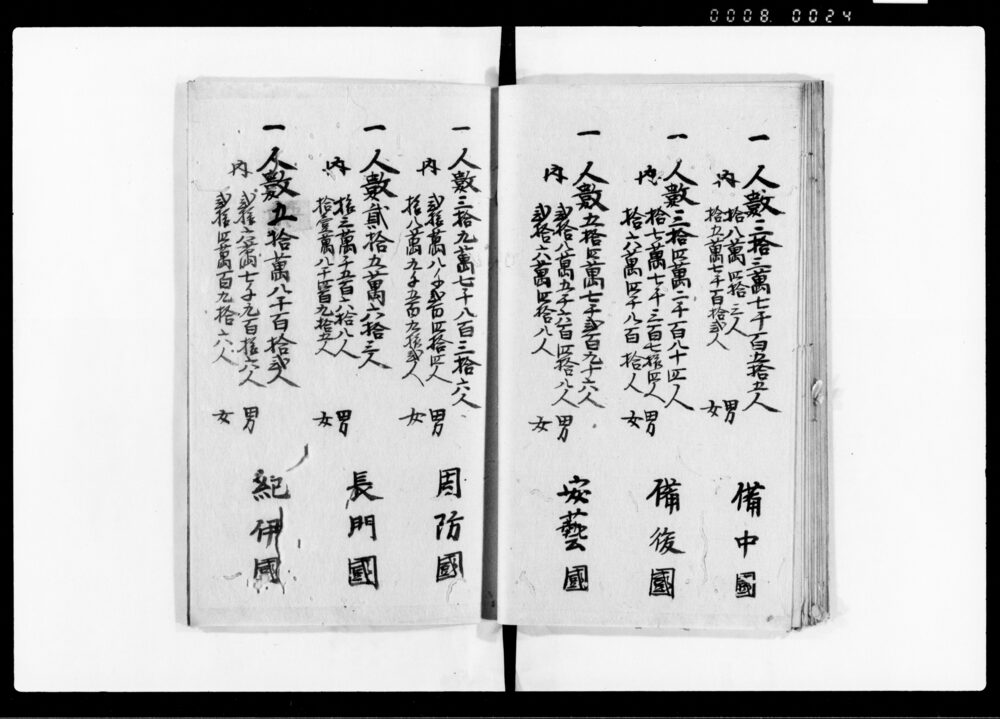 0008. 0024
一人數三拾三萬七千百五拾五人
内
拾八萬四拾三人 男
拾五萬七千百拾弐人 女
備中國
一人數三拾四萬二千百八十四人
内
拾七萬七千三百七拾四人 男
拾六萬四千八百拾人 女
備後國
一人數五拾四萬七千弐百九十六人
内
弐拾八萬五千六百四拾八人 男
弐拾六萬四拾八人 女
安藝國
一人數三拾九萬七千八百三拾六人
内
弐拾萬八千弐百四拾四人 男
拾八萬九千五百九拾弐人 女
周防國
一人數貳拾五萬六拾三人
内
拾三萬千五百六拾八人 男
拾壹萬八千四百九拾五人 女
長門國
一人數五拾萬八千百拾弐人
内
弐拾六萬七千九百拾六人 男
弐拾四萬百九拾六人 女
紀伊國